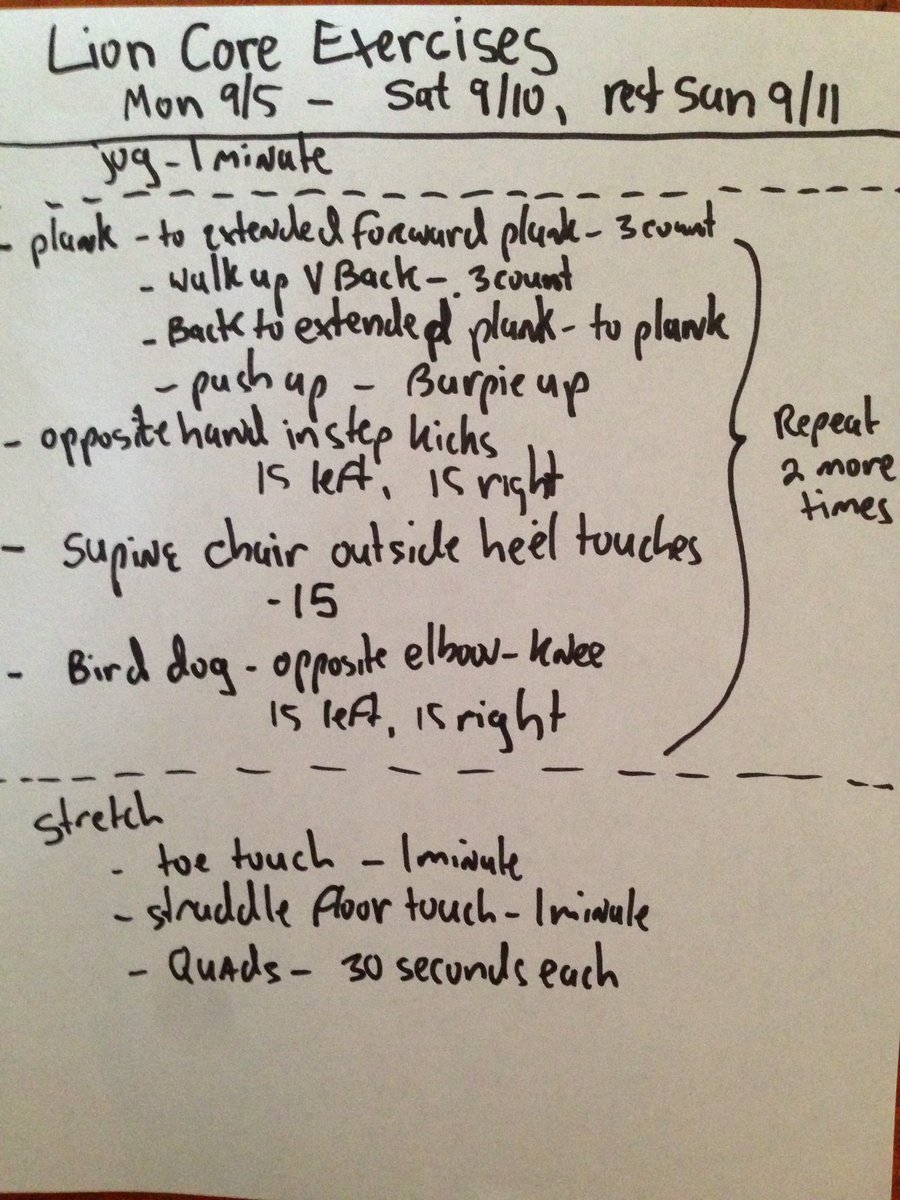 Lion Core Exercises
Mon 9/5 - Sat 9/10, rest Sun 9/11
jog - 1 minute
- plank - to extended forward plank - 3 count
- walk up V Back - 3 count
- Back to extended plank - to plank
- push up - Burpie up
- opposite hand instep kicks
15 left, 15 right
- supine chair outside heel touches
- 15
- Bird dog - opposite elbow - knee
15 left, 15 right
Repeat
2 more
times
stretch
- toe touch - 1 minute
- straddle floor touch - 1 minute
- Quads - 30 seconds each